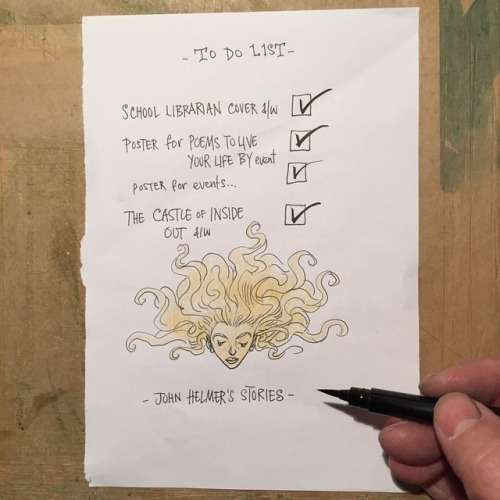 - TO DO LIST -
SCHOOL LIBRARIAN COVER a/w
POSTER for POEMS TO LIVE
YOUR LIFE BY event
POSTER for events...
THE CASTLE of INSIDE
OUT a/w
- JOHN HELMER'S STORIES -